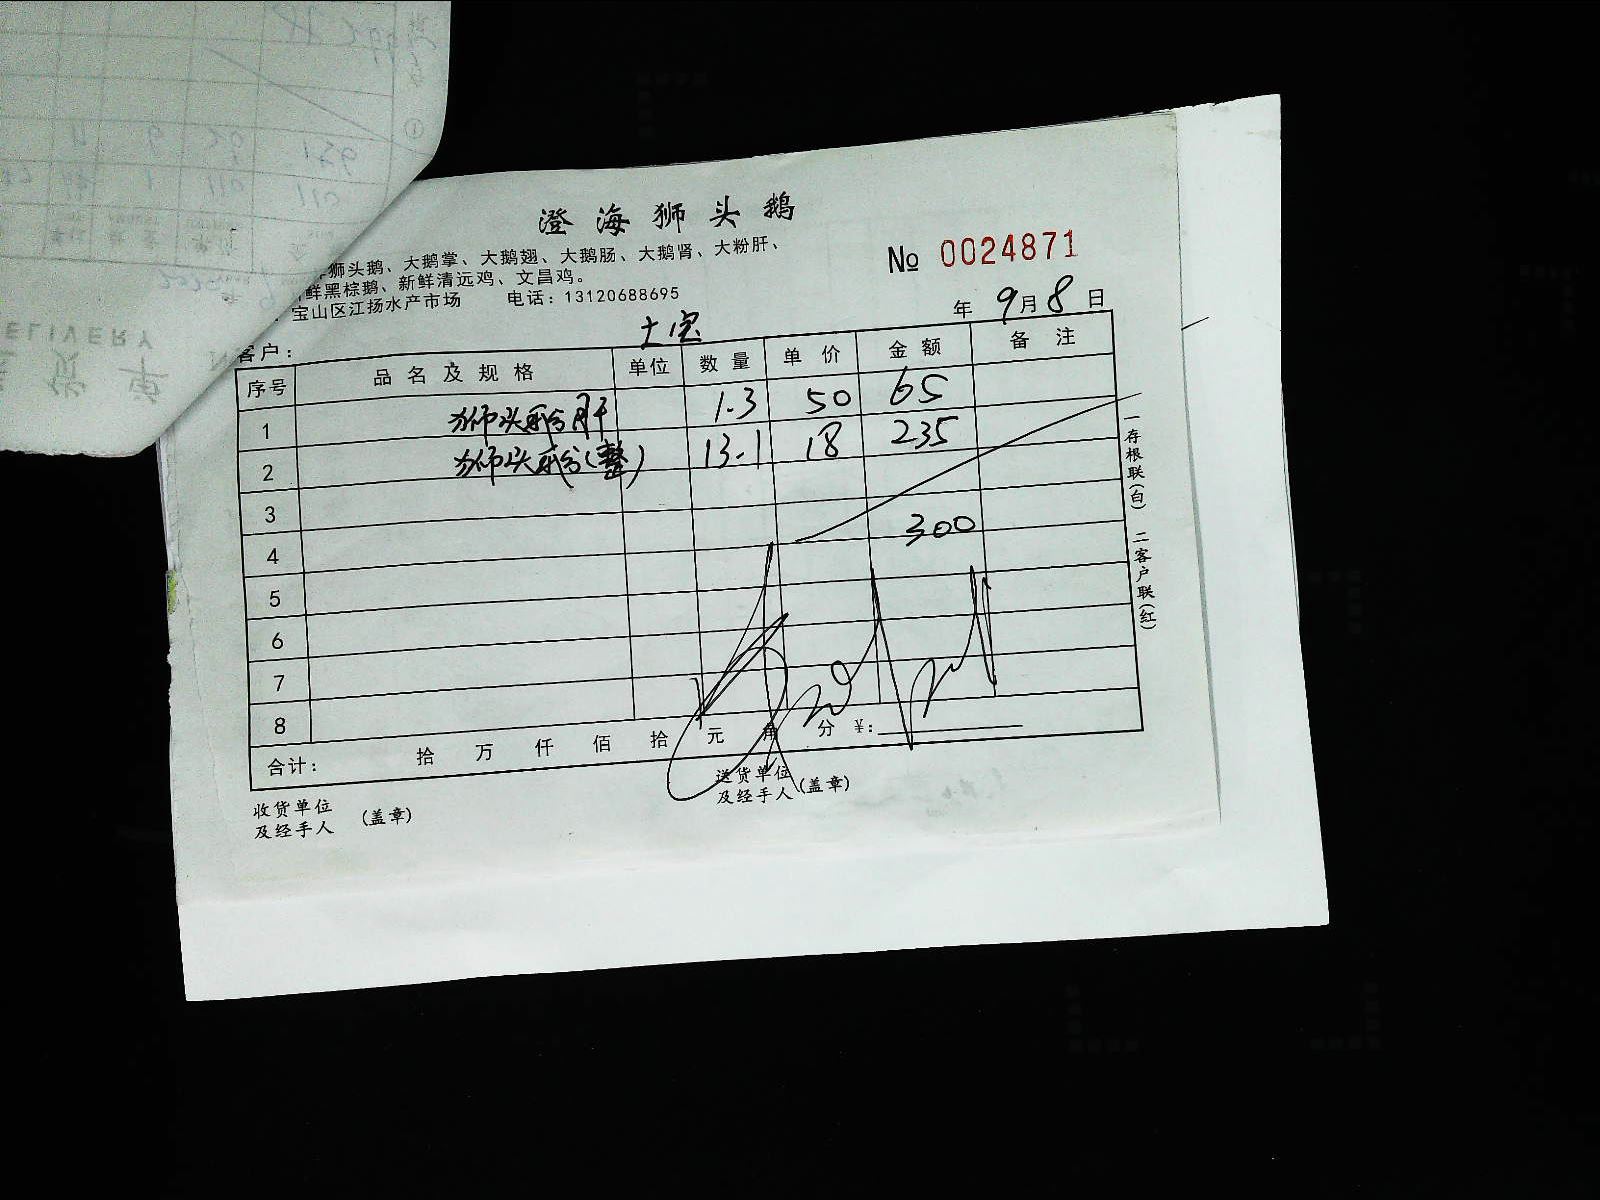 澄海狮头鹅
狮头鹅、大鹅掌、大鹅翅、大鹅肠、大鹅肾、大粉肝、
鲜黑棕鹅、新鲜清远鸡、文昌鸡。
宝山区江扬水产市场 电话：13120688695
№ 0024871
年 9月8日
客户： 土宝
序号 品名及规格 单位 数量 单价 金额 备注
1 狮头鹅肝 1.3 50 65
2 狮头鹅(整) 13.1 18 235
3
4 300
5
6
7
8
合计： 拾 万 仟 佰 拾 元 角 分 ¥：
收货单位
及经手人 (盖章)
送货单位
及经手人 (盖章)
一存根联(白) 二客户联(红)